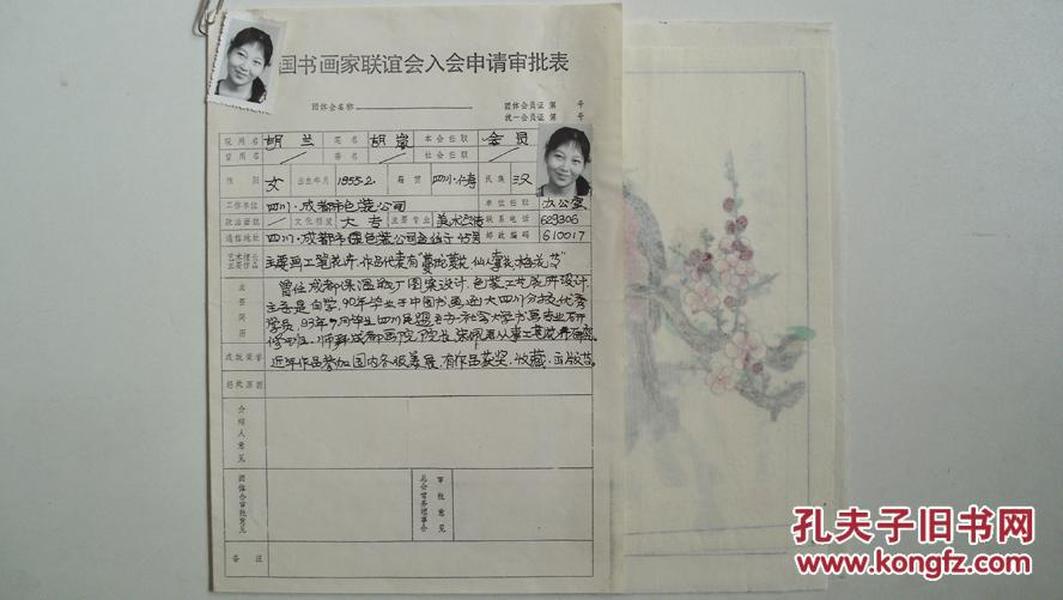 国书画家联谊会入会申请审批表
团体会名称
团体会员证 第 号
统一会员证 第 号
现用名 胡兰 笔名 胡岚 本会任职 会员
曾用名 / 斋名 / 社会任职 /
性别 女 出生年月 1955.2. 籍贯 四川·仁寿 民族 汉
工作单位 四川·成都市包装公司 单位任职 办公室
政治面貌 / 文化程度 大专 主要专业 美术 联系电话 629306
通信地址 四川·成都市 包装公司 邮政编码 610017
艺术擅长
主要作品
主要画工笔花卉.作品代表有
从艺简历
曾任成都保温瓶厂图案设计.包装工艺 设计.
主要是自学.90年毕业于中国书画函大四川分校优秀
学员.93年9月毕业四川民盟 社会大学书画专业研
修班.师 成都画院院长 从事工笔花卉研究.
成就荣誉 近年作品参加国内各级美展.有作品获奖.收藏.出版等.
惩处原因
介绍人意见
团体会审批意见
总会常务理事会
审批意见
备注
孔夫子旧书网
www.kongfz.com